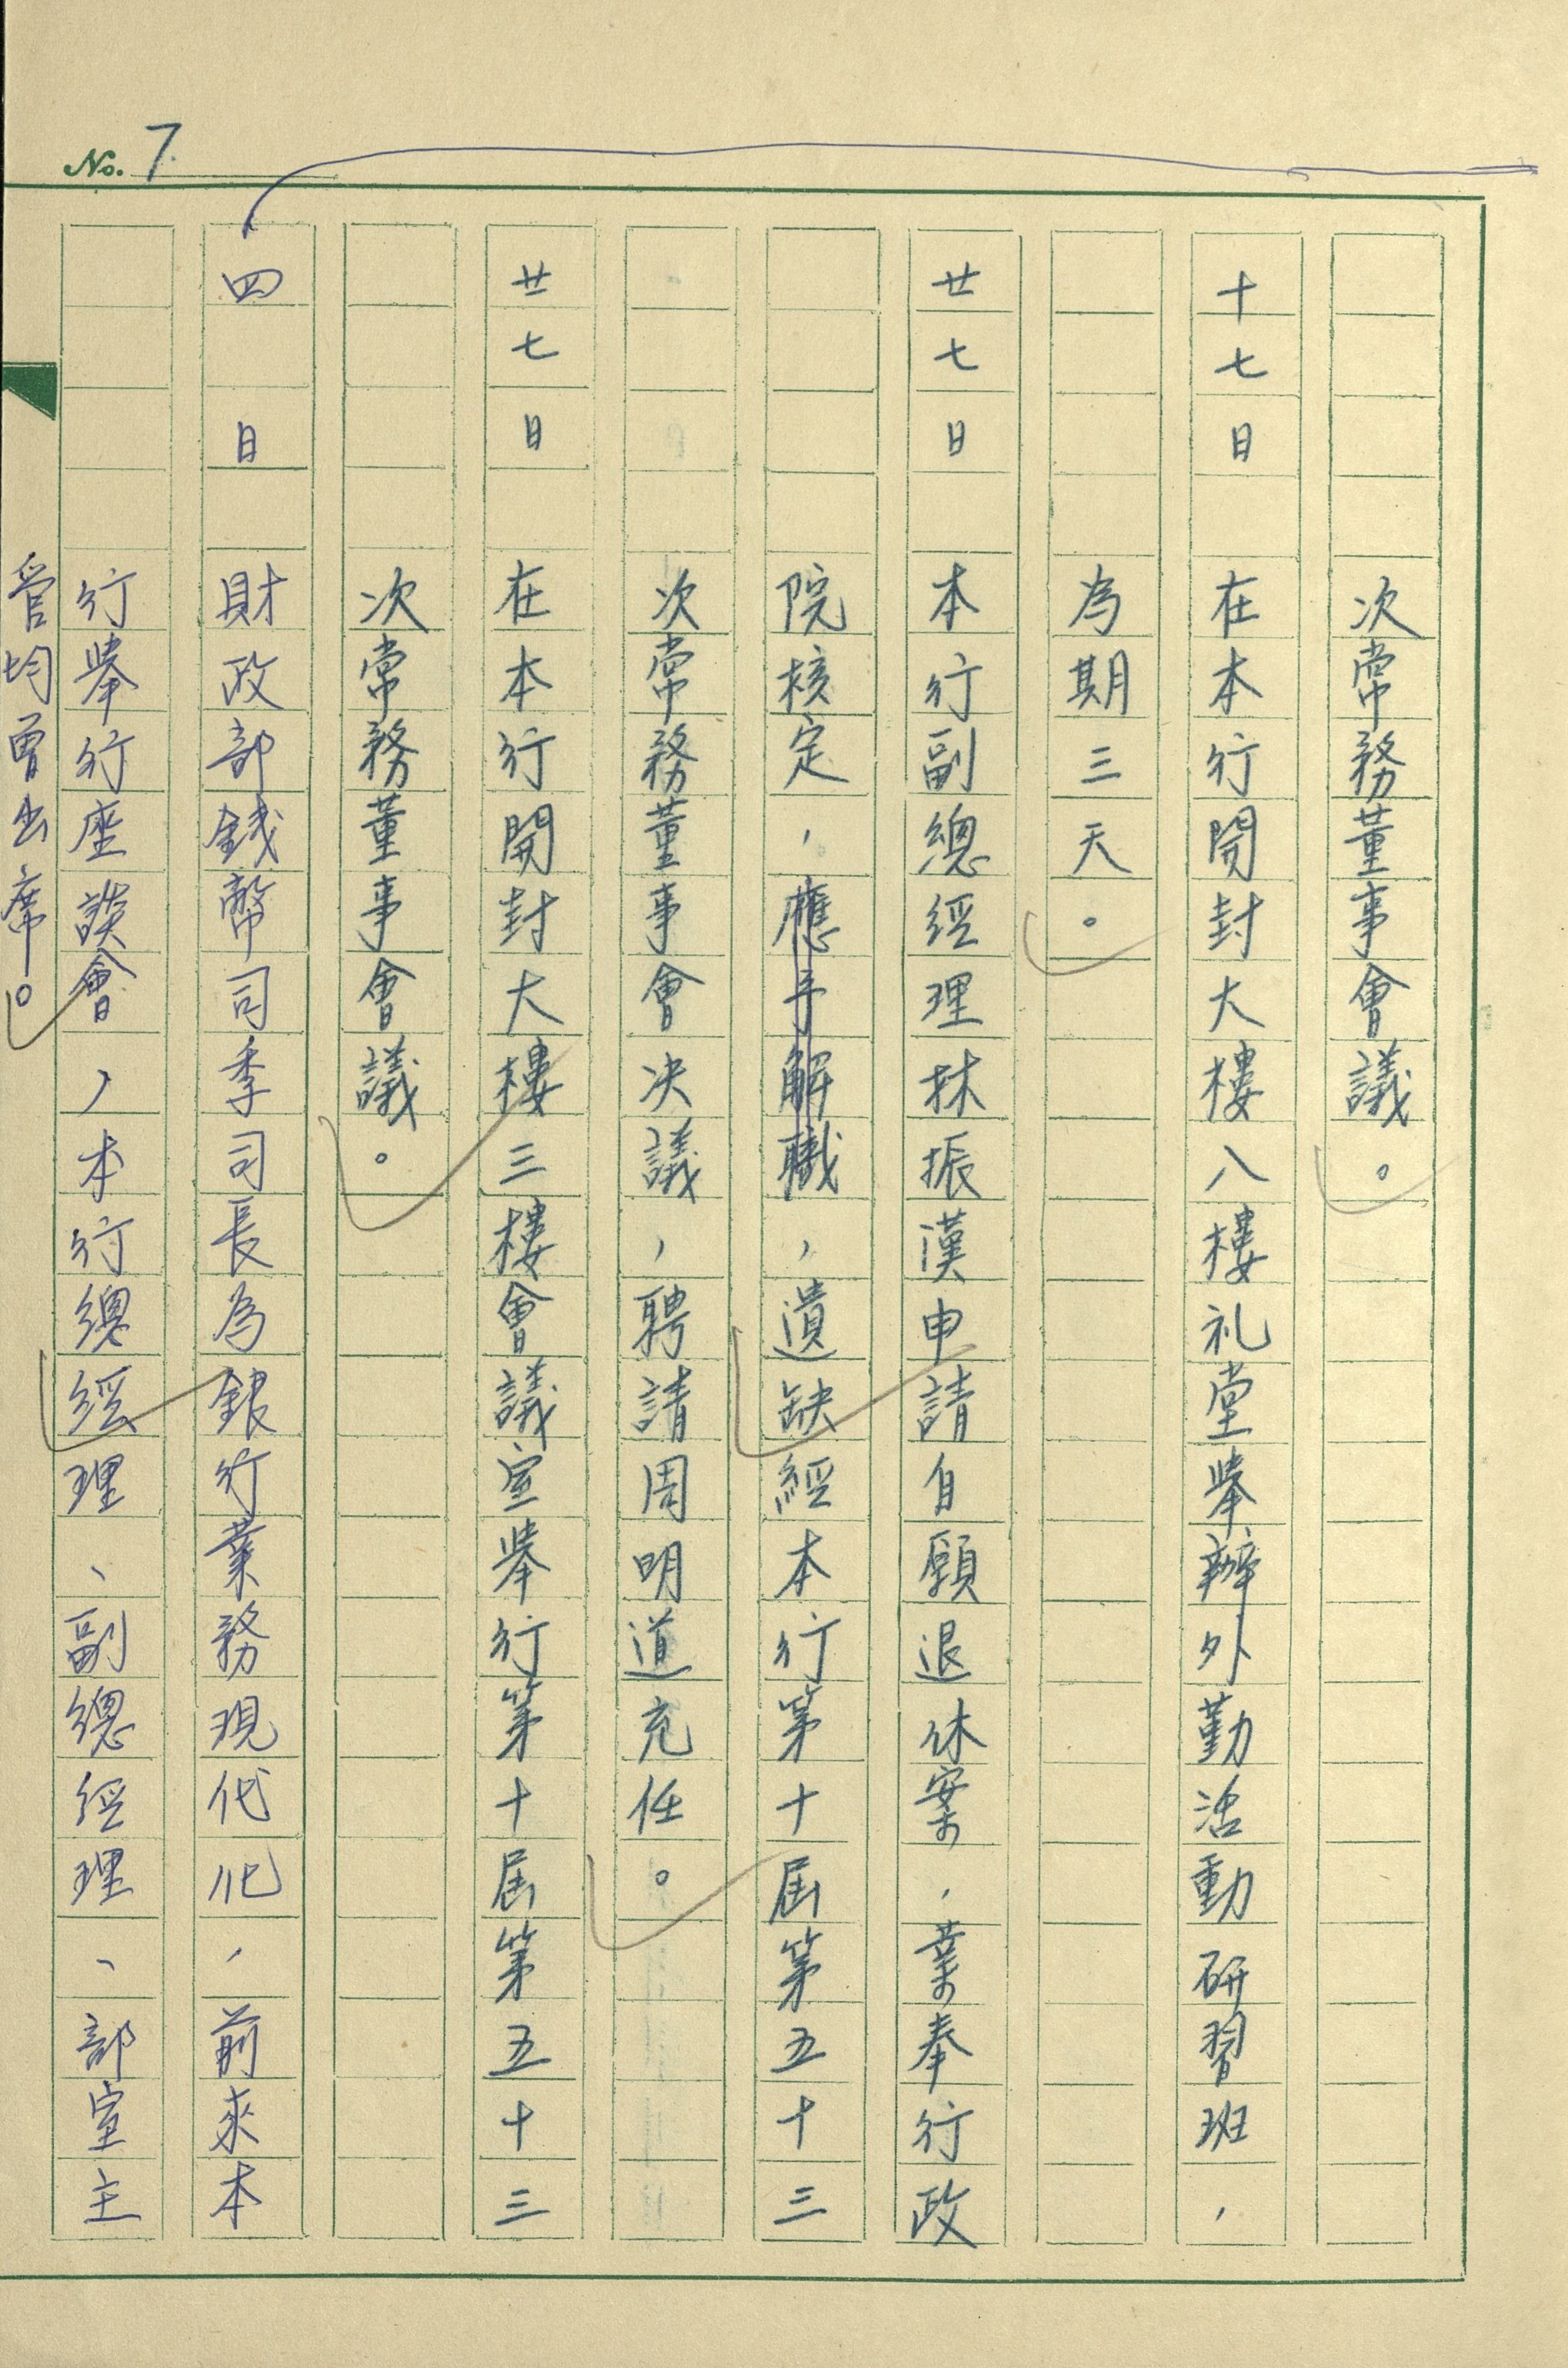 No. 7
次常務董事會議。
十七日 在本行開封大樓八樓礼堂舉辦外勤活動研習班，
為期三天。
廿七日 本行副總經理林振漢申請自願退休案，業奉行政
院核定，應予解職，遺缺經本行第十屆第五十三
次常務董事會決議，聘請周明道充任。
廿七日 在本行開封大樓三樓會議室舉行第十屆第五十三
次常務董事會議。
四日 財政部錢幣司季司長為銀行業務現代化，前來本
行舉行座談會，本行總經理、副總經理、部室主
管均曾出席。